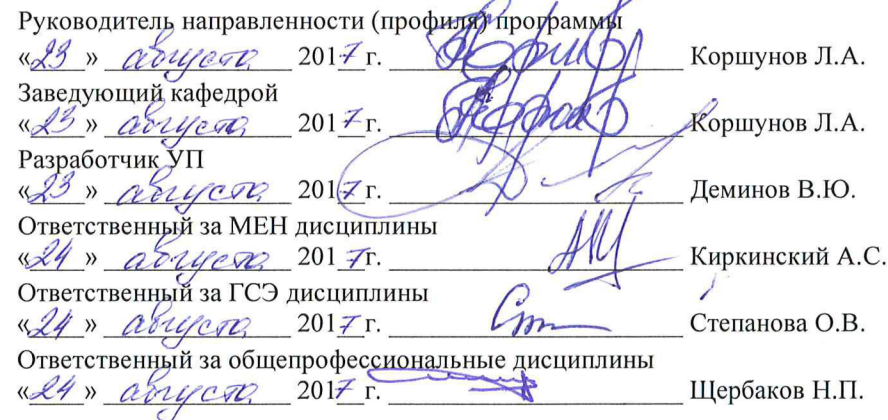 Руководитель направленности (профиля) программы
«23» августа 2017г. Коршунов Л.А.
Заведующий кафедрой
«23» августа 2017г. Коршунов Л.А.
Разработчик УП
«23» августа 2017г. Деминов В.Ю.
Ответственный за МЕН дисциплины
«24» августа 2017г. Киркинский А.С.
Ответственный за ГСЭ дисциплины
«24» августа 2017г. Степанова О.В.
Ответственный за общепрофессиональные дисциплины
«24» августа 2017г. Щербаков Н.П.